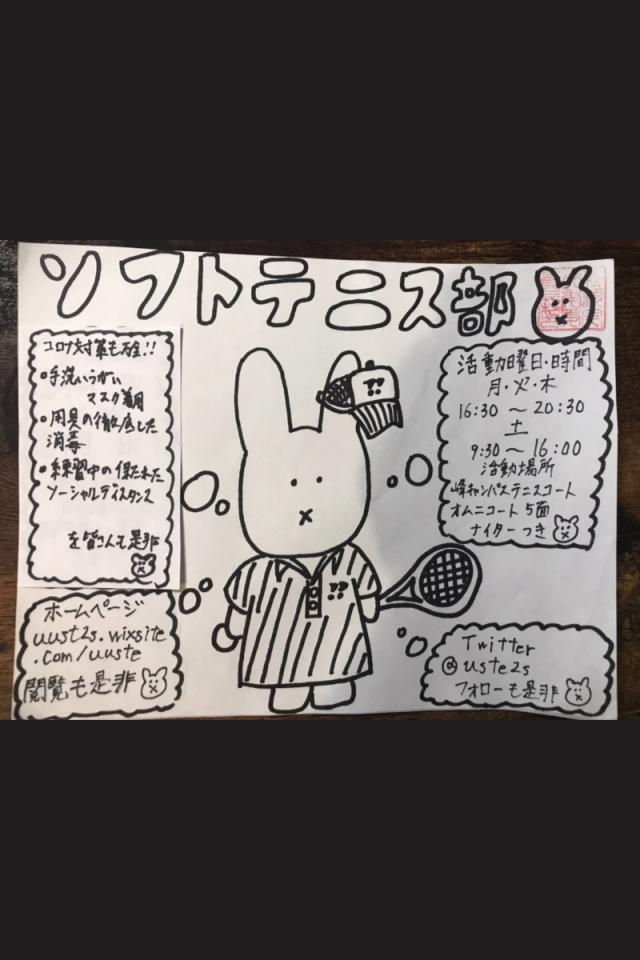 ソフトテニス部
コロナ対策も万全!!
手洗いうがい
マスク着用
用具の徹底した
消毒
練習中の保たれた
ソーシャルディスタンス
を皆さんも是非
活動曜日・時間
月・火・木
16:30 〜 20:30
土
9:30 〜 16:00
活動場所
峰キャンパステニスコート
オムニコート5面
ナイターつき
ホームページ
uust2s.wixsite
.com/uuste
閲覧も是非
Twitter
@uste2s
フォローも是非